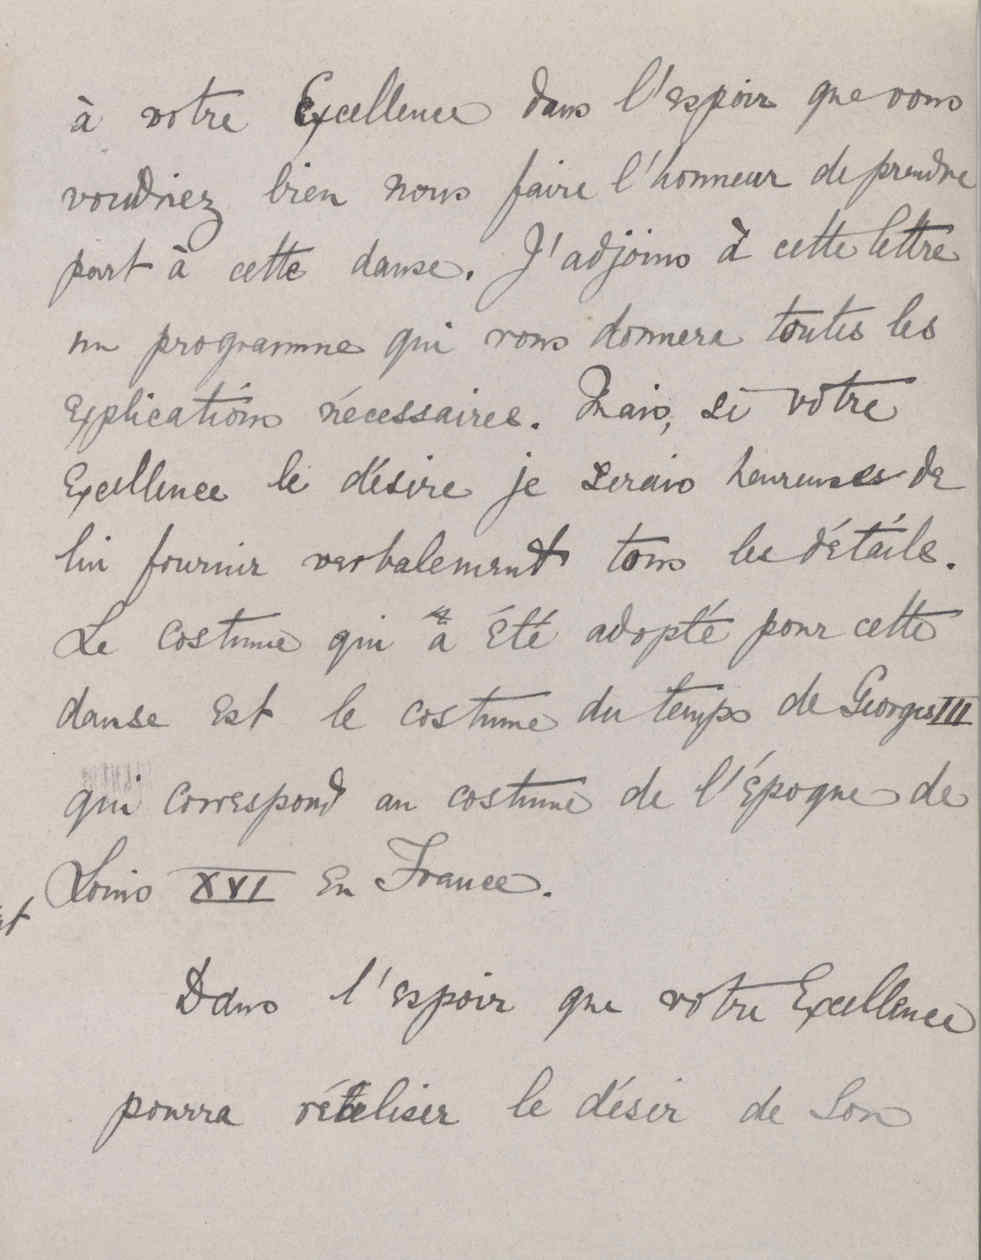 à votre Excellence dans l'espoir que vous
voudriez bien nous faire l'honneur de prendre
part à cette danse. J'adjoins à cette lettre
un programme qui vous donnera toutes les
explications nécessaires. Mais, si votre
Excellence le désire je serais heureuse de
lui fournir verbalement tous les détails.
Le costume qui a été adopté pour cette
danse est le costume du temps de Georges III
qui correspond au costume de l'époque de
Louis XVI en France.
Dans l'espoir que votre Excellence
pourra réaliser le désir de Son